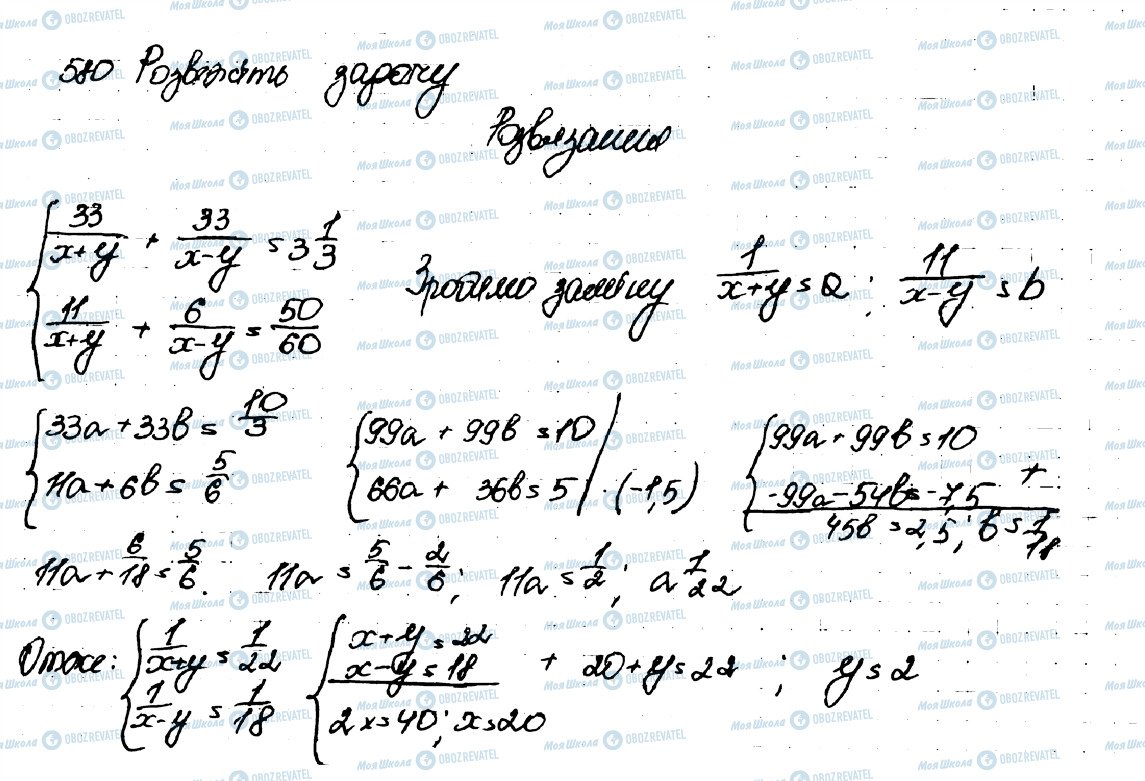 580 Розв'яжіть задачу
Розв'язання
{ 33/(x+y) + 33/(x-y) = 3 1/3
11/(x+y) + 6/(x-y) = 50/60
Зробимо заміну 1/(x+y) = a; 11/(x-y) = b
{ 33a + 33b = 10/3
11a + 6b = 5/6
{ 99a + 99b = 10
66a + 36b = 5 | · (-1,5)
{ 99a + 99b = 10
-99a - 54b = -7,5 +
45b = 2,5; b = 1/18
11a + 6/18 = 5/6. 11a = 5/6 - 2/6; 11a = 1/2; a 1/22
Отже: { 1/(x+y) = 1/22
1/(x-y) = 1/18
{ x+y = 22
x-y = 18 +
2x = 40; x = 20
20 + y = 22; y = 2
Моя Школа OBOZREVATEL